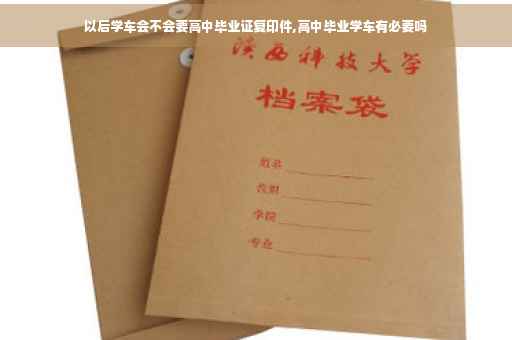 以后学车会不会要高中毕业证复印件,高中毕业学车有必要吗
陕西科技大学
档案袋
姓名
性别
学院
专业